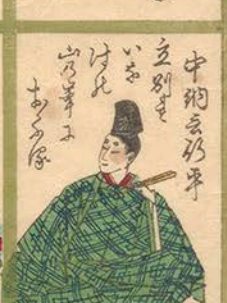 中納言行平
立別れ
いな
はの
山乃峯に
おふる